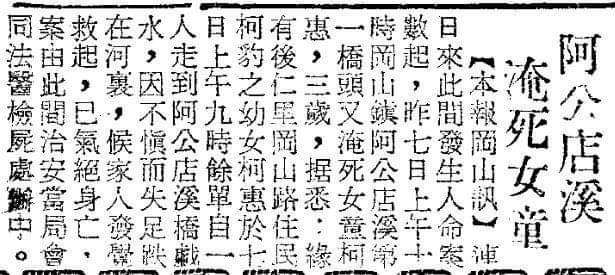 阿公店溪
淹死女童
【本報岡山訊】連
日來此間發生人命案
數起，昨七日上午十
時岡山鎮阿公店溪第
一橋頭又淹死女童柯
惠，三歲，据悉：緣
有後仁里岡山路住民
柯豹之幼女柯惠於七
日上午九時餘單自一
人走到阿公店溪橋戲
水，因不慎而失足跌
在河裏，候家人發覺
救起，已氣絕身亡，
案由此間治安當局會
同法醫檢屍處辦中。